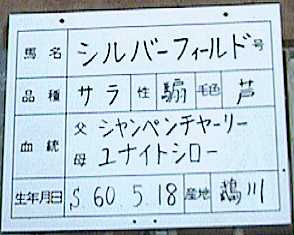 馬名 シルバーフィールド号
品種 サラ 性 騸 毛色 芦
血統 父 シャンペンチャーリー
母 ユナイトシロー
生年月日 S 60.5.18 産地 鵡川